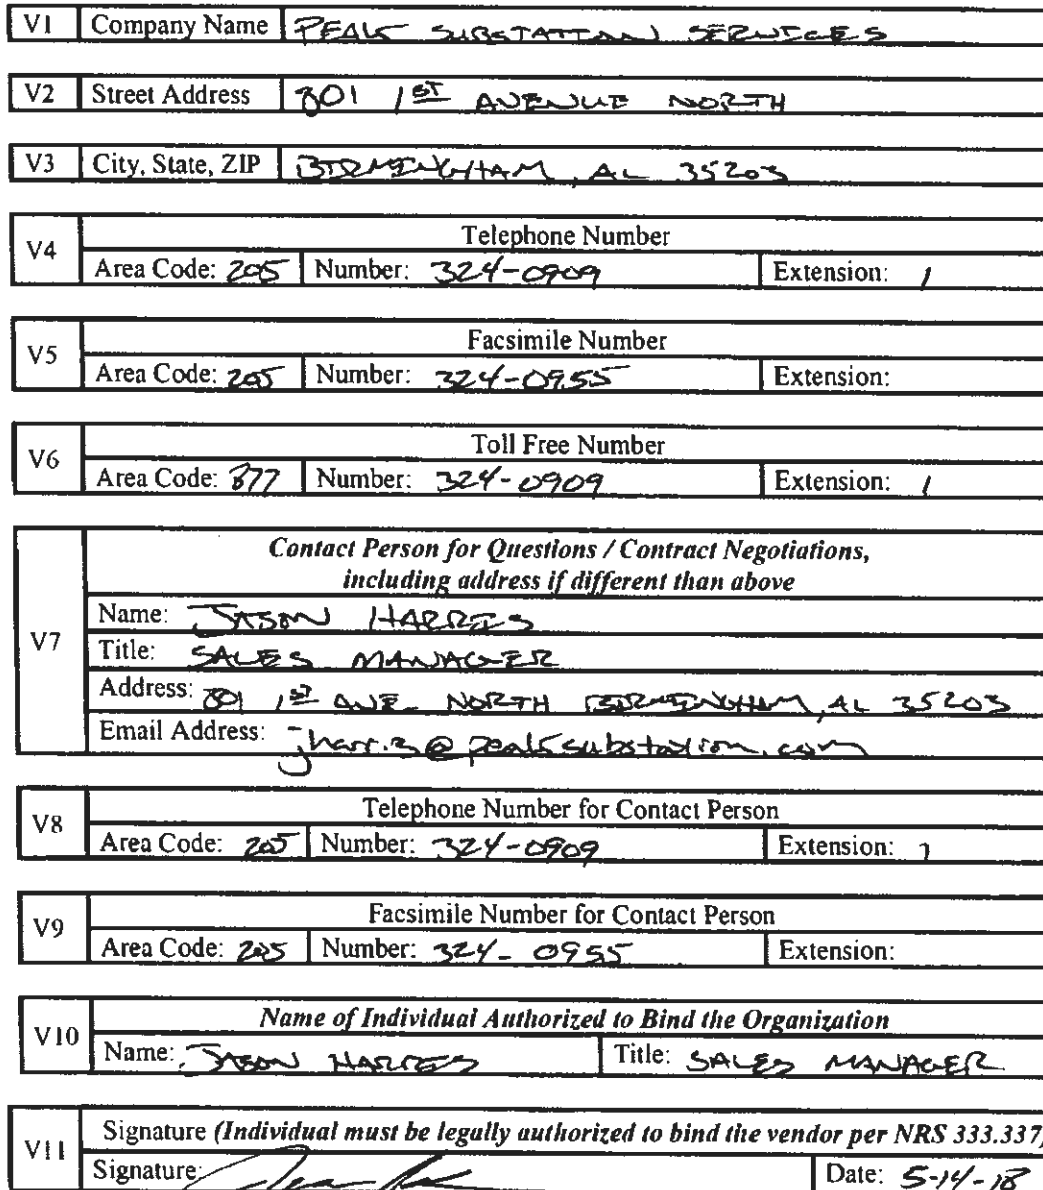 V1 Company Name PEAK SUBSTATION SERVICES
V2 Street Address 801 1ST AVENUE NORTH
V3 City, State, ZIP BIRMINGHAM, AL 35203
V4 Telephone Number
Area Code: 205 Number: 324-0909 Extension: 1
V5 Facsimile Number
Area Code: 205 Number: 324-0955 Extension:
V6 Toll Free Number
Area Code: 877 Number: 324-0909 Extension: 1
V7 Contact Person for Questions / Contract Negotiations,
including address if different than above
Name: JASON HARRIS
Title: SALES MANAGER
Address: 801 1ST AVE NORTH BIRMINGHAM, AL 35203
Email Address: jharris@peaksubstation.com
V8 Telephone Number for Contact Person
Area Code: 205 Number: 324-0909 Extension: 1
V9 Facsimile Number for Contact Person
Area Code: 205 Number: 324-0955 Extension:
V10 Name of Individual Authorized to Bind the Organization
Name: JASON HARRIS Title: SALES MANAGER
V11 Signature (Individual must be legally authorized to bind the vendor per NRS 333.337)
Signature: Date: 5-14-18